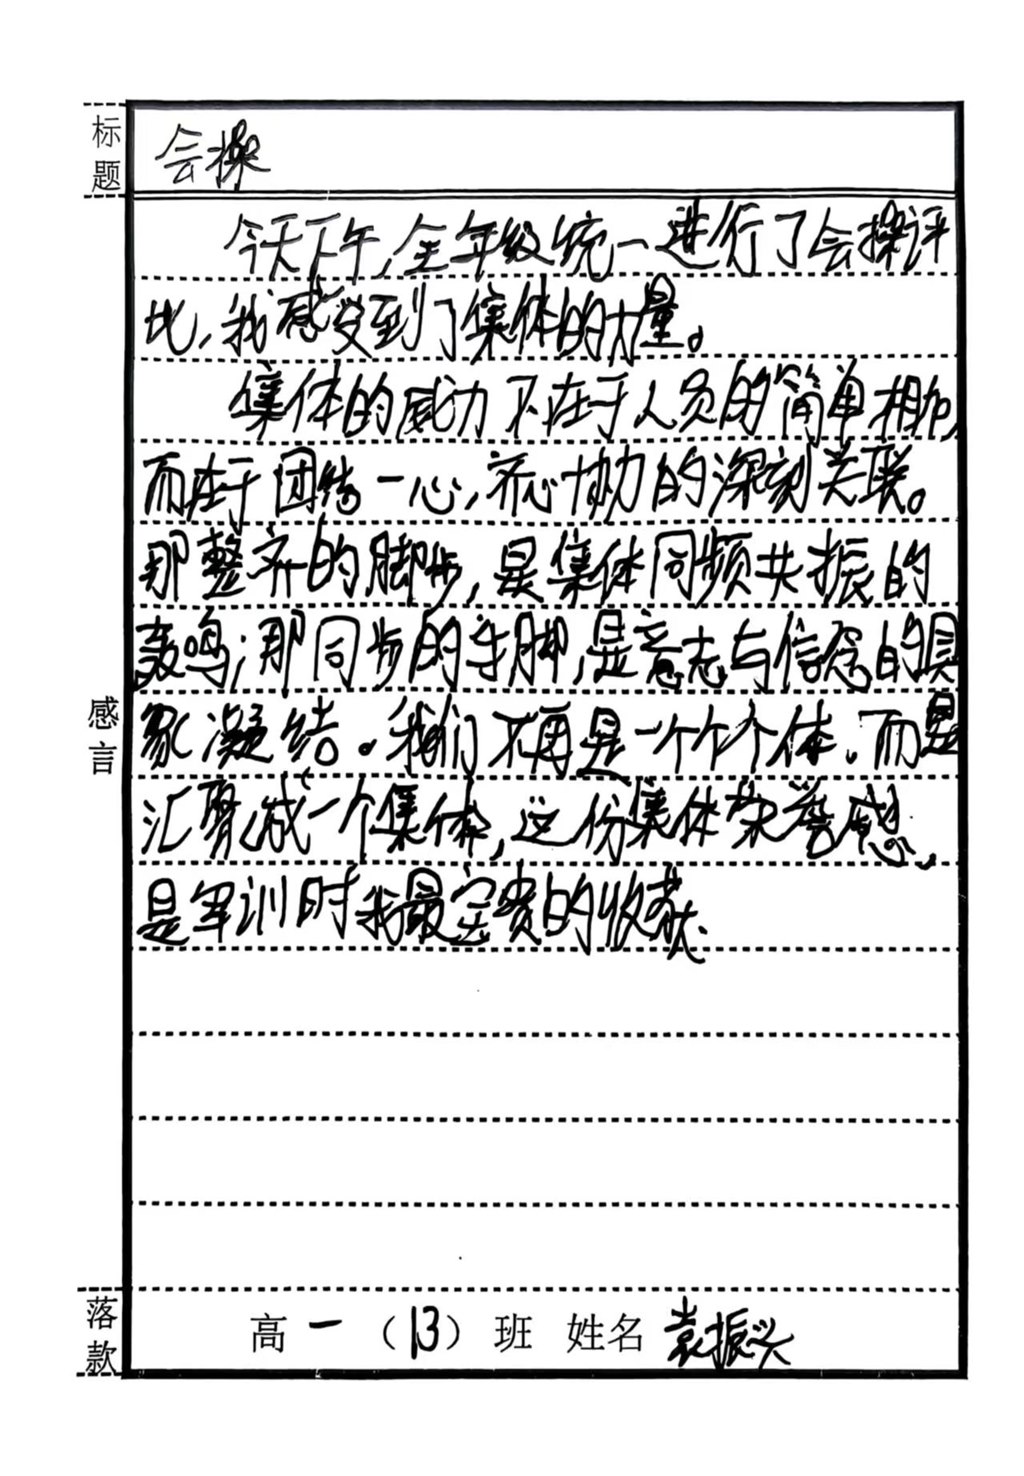 标题
会操
今天下午,全年级统一进行了会操评
比,我感受到了集体的力量。
集体的威力不在于人员的简单相加,
而在于团结一心,齐心协力的深刻关联。
那整齐的脚步,是集体同频共振的
轰鸣;那同步的手脚,是意志与信念的具
象凝结。我们不再是一个个个体,而是
汇聚成一个集体,这份集体荣誉感,
是军训时我最宝贵的收获.
感言
落款
高一(13)班 姓名 袁振兴